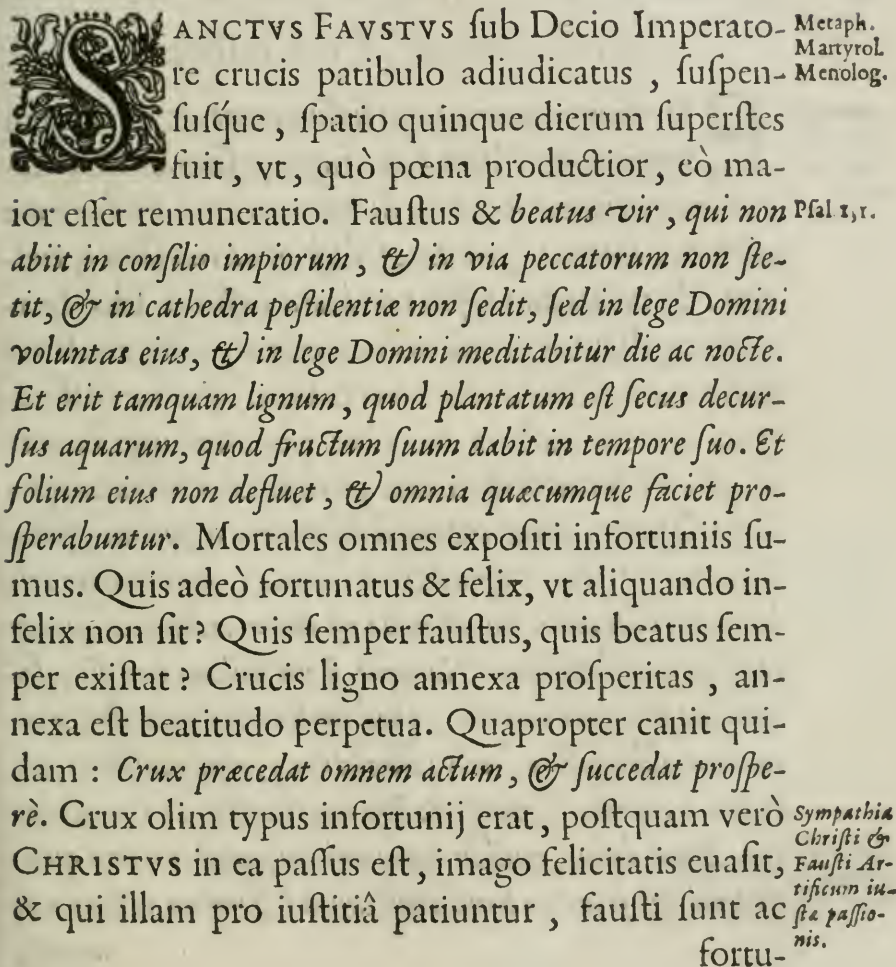 SANCTVS FAVSTVS ſub Decio Imperato-
re crucis patibulo adiudicatus , ſuſpen-
ſuſq́ue , ſpatio quinque dierum ſuperſtes
fuit, vt, quò pœna productior, eò ma-
ior eſſet remuneratio. Fauſtus & beatus vir, qui non
abiit in conſilio impiorum, & in via peccatorum non ſte-
tit, & in cathedra peſtilentiæ non ſedit, ſed in lege Domini
voluntas eius, & in lege Domini meditabitur die ac nocte.
Et erit tamquam lignum, quod plantatum eſt ſecus decur-
ſus aquarum, quod fructum ſuum dabit in tempore ſuo. Et
folium eius non defluet, & omnia quæcumque faciet pro-
ſperabuntur. Mortales omnes expoſiti infortuniis ſu-
mus. Quis adeò fortunatus & felix, vt aliquando in-
felix non ſit? Quis ſemper fauſtus, quis beatus ſem-
per exiſtat? Crucis ligno annexa proſperitas, an-
nexa eſt beatitudo perpetua. Quapropter canit qui-
dam: Crux præcedat omnem actum, & ſuccedat proſpe-
rè. Crux olim typus infortunij erat, poſtquam verò
CHRISTVS in ea paſſus eſt, imago felicitatis euaſit,
& qui illam pro iuſtitiâ patiuntur, fauſti ſunt ac
fortu-
Metaph.
Martyrol.
Menolog.
Pſal 1,1.
Sympathia
Chriſti &
Fauſti Ar-
tificum iu-
ſtæ paſſio-
nis.